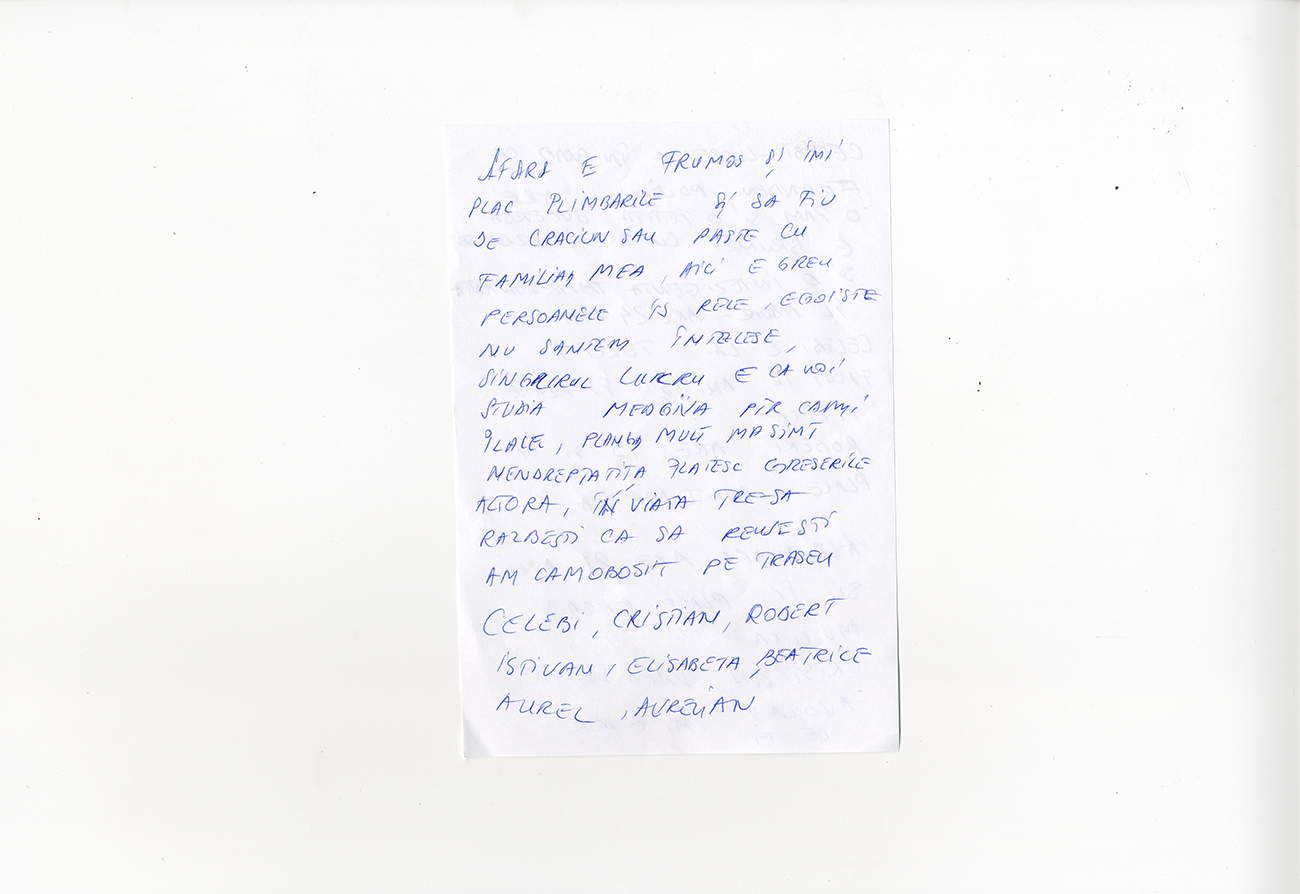 AFARA E FRUMOS ȘI ÎMI
PLAC PLIMBARILE ȘI SA FIU
DE CRACIUN SAU PASTE CU
FAMILIA MEA, AICI E GREU
PERSOANELE ÎS RELE, EGOISTE
NU SANTEM ÎNTELESE,
SINGRIRUL LUCRU E CA VOI
STUDIA MEDGINA PIR CAMI
PLACE, PLANG MULT MA SIMT
MENDREPTATITA PLATESC GRESERILE
ALTORA, ÎN VIATA TRE-SA
RAZBESTI CA SA REUSESTI
AM CAMOBOSIT PE TRASEU
CELEBI, CRISTIAN, ROBERT
ISTIVAN, ELISABETA, BEATRICE
AUREL, AURELIAN